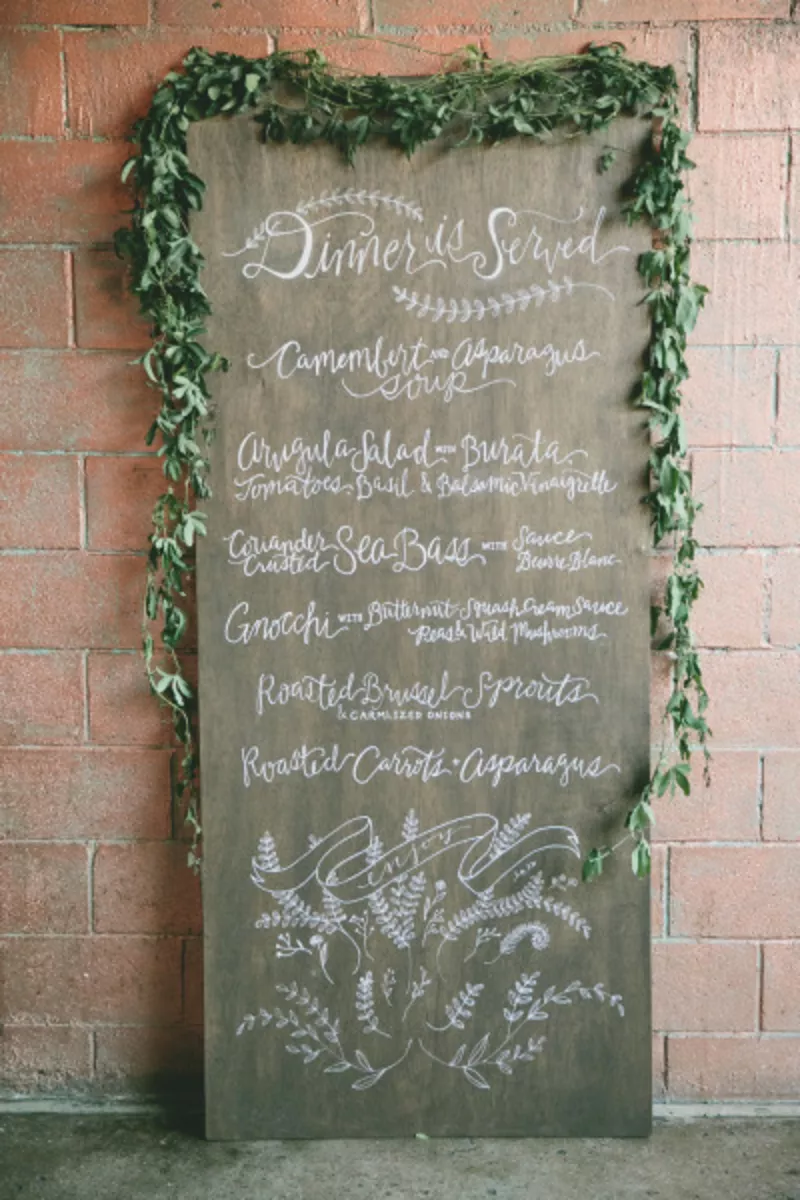 Dinner is Served
Camembert AND Asparagus
Soup
Arugula Salad WITH Burata
Tomatoes, Basil & Balsamic Vinaigrette
Coriander Crusted Sea Bass WITH Sauce Beurre Blanc
Gnocchi WITH Butternut Squash Cream Sauce
Peas & Wild Mushrooms
Roasted Brussel Sprouts
& CARMLIZED ONIONS
Roasted Carrots + Asparagus
enjoy